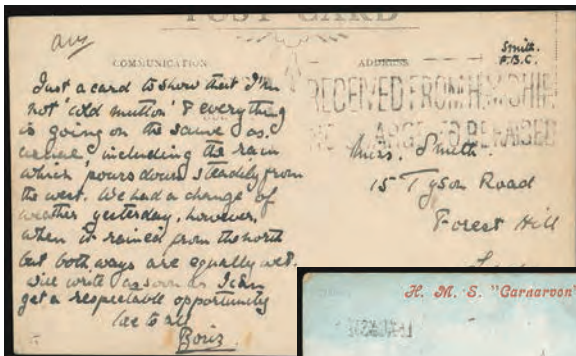 POST CARD
ans
COMMUNICATION
ADDRESS
Smith.
F.B.C.
Just a card to show that I'm
not 'cold mutton' & everything
is going on the same as
usual, including the rain
which pours down steadily from
the west. We had a change of
weather yesterday, however,
when it rained from the north
but both ways are equally wet.
Will write as soon as I can
get a respectable opportunity
to all
Boris
RECEIVED FROM H.M. SHIP
NO CHARGE TO BE RAISED
Smith.
15 Tyson Road
Forest Hill
H. M. S. "Carnarvon"